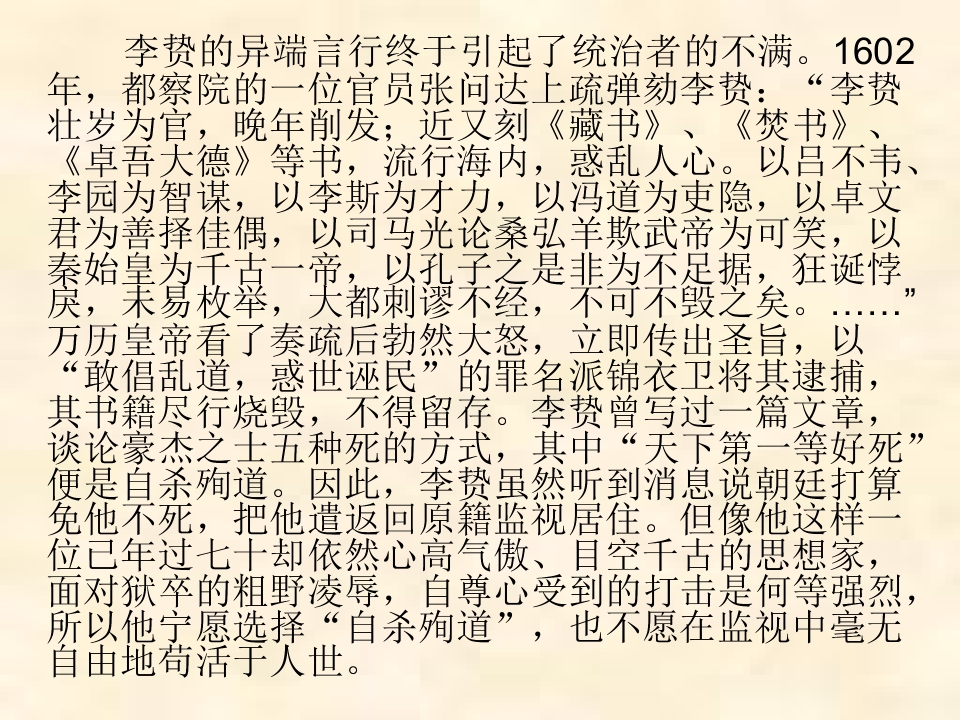 李贽的异端言行终于引起了统治者的不满。1602
年，都察院的一位官员张问达上疏弹劾李贽：“李贽
壮岁为官，晚年削发；近又刻《藏书》、《焚书》、
《卓吾大德》等书，流行海内，惑乱人心。以吕不韦、
李园为智谋，以李斯为才力，以冯道为吏隐，以卓文
君为善择佳偶，以司马光论桑弘羊欺武帝为可笑，以
秦始皇为千古一帝，以孔子之是非为不足据，狂诞悖
戾，未易枚举，大都刺谬不经，不可不毁之矣。……”
万历皇帝看了奏疏后勃然大怒，立即传出圣旨，以
“敢倡乱道，惑世诬民”的罪名派锦衣卫将其逮捕，
其书籍尽行烧毁，不得留存。李贽曾写过一篇文章，
谈论豪杰之士五种死的方式，其中“天下第一等好死”
便是自杀殉道。因此，李贽虽然听到消息说朝廷打算
免他不死，把他遣返回原籍监视居住。但像他这样一
位已年过七十却依然心高气傲、目空千古的思想家，
面对狱卒的粗野凌辱，自尊心受到的打击是何等强烈，
所以他宁愿选择“自杀殉道”，也不愿在监视中毫无
自由地苟活于人世。